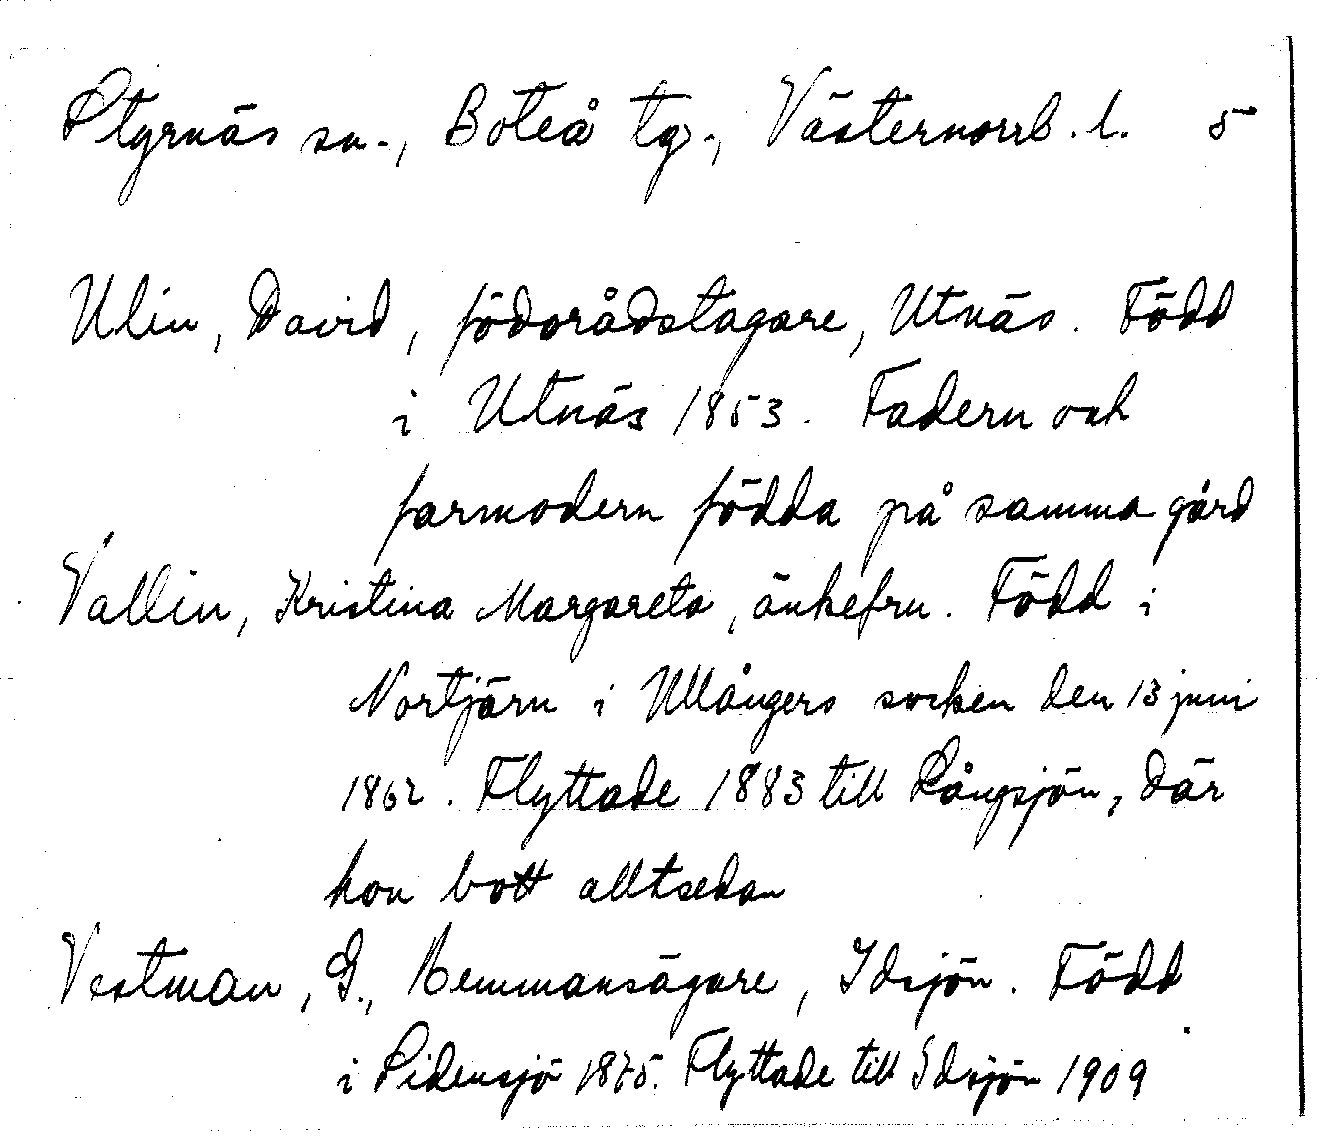 Styrnäs sn., Boteå tg., Västernorrl. l. 5
Ulin, David, födorådstagare, Utnäs. Född
i Utnäs 1853. Fadern och
farmodern födda på samma gård
Vallin, Kristina Margareta, änkefru. Född i
Nortjärn i Ullångers socken den 13 juni
1862. Flyttade 1883 till Långsjön, där
hon bott alltsedan
Vestman, G., hemmansägare, Idsjön. Född
i Sidensjö 1875. Flyttade till Idsjön 1909